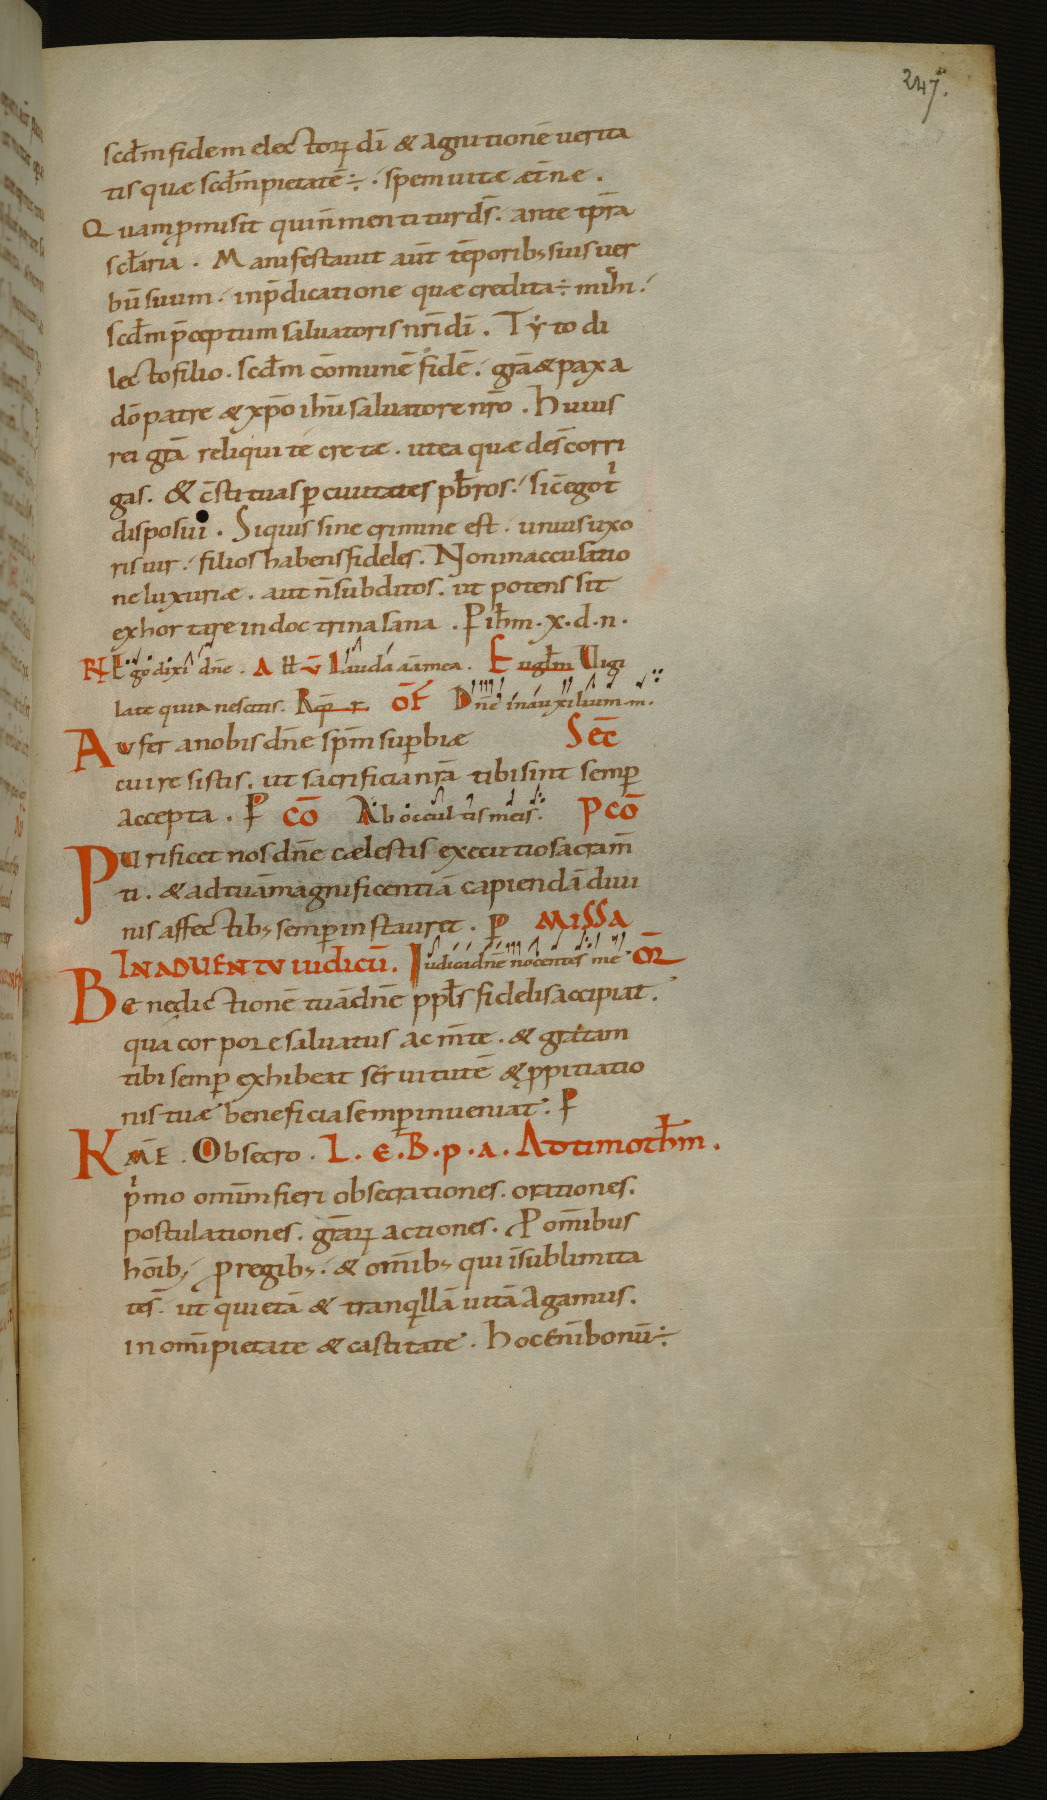 247.
scdm fidem electoꝝ di & agnitionē uerita
tis quæ scdm pietatē ÷ . spem uitæ æt̄næ .
Quam ꝓmisit qui n̄ mentitur ds̄ . ante tp̄ra
sclāria . Manifestauit aūt tēporibꝫ suis uer
bū suum . in p̄dicatione quæ credita ÷ mihi .
scdm p̄ceptum saluatoris nr̄i dī . Tyto di
lecto filio . scdm cōmunē fidē . grā & pax a
dō patre & xpō ihū saluatore nrō . huius
rei gtā reliqui te cretæ . ut ea quæ des̄ corri
gas . & c̄stituas per ciuitates pbr̄os . sic̄ ego t
disposui . Si quis sine crimine est . unius uxo
ris uir . filios habens fideles . Non in accusatio
ne luxuriæ . aut n̄ subditos . ut potens sit
exhortare in doctrina sana . P ihm . x . d . n .
R Ego dixi dne . A ll v Lauda āā mea . E uglm Uigi
late quia nescitis . Rq̄ r . OF Dnē in auxilium m .
Aufer a nobis dne spm suꝑbiæ Sec̄
cui resistis . ut sacrificia nrā tibi sint semꝑ
accepta . P cō Ab occultis meis . P cō
Purificet nos dne cælestis executio sacram̄
ti . & ad tuā magnificentiā capiendā diui
nis affectibꝫ semꝑ instauret . P Missa
IN ADUENTV iudicū . Iudica dnē nocentes me OR̄
Benedictionē tuā dnē ppls̄ fidelis accipiat .
qua corpore saluatus ac m̄te . & gratam
tibi semꝑ exhibeat seruitutē & ꝓpitiatio
nis tuæ beneficia semꝑ inueniat . P
Kme . Obsecro . L . E . B . p . a . Ad timothm .
primo omm̄ fieri obsecrationes . orationes .
postulationes . grāꝝ actiones . P om̄ibus
hoīb; ꝓ regibꝫ . & om̄ibꝫ qui ī sublimita
te s̄ . ut quietā & tranqllā uitā agamus .
in om̄i pietate & castitate . hoc enī bonū ÷